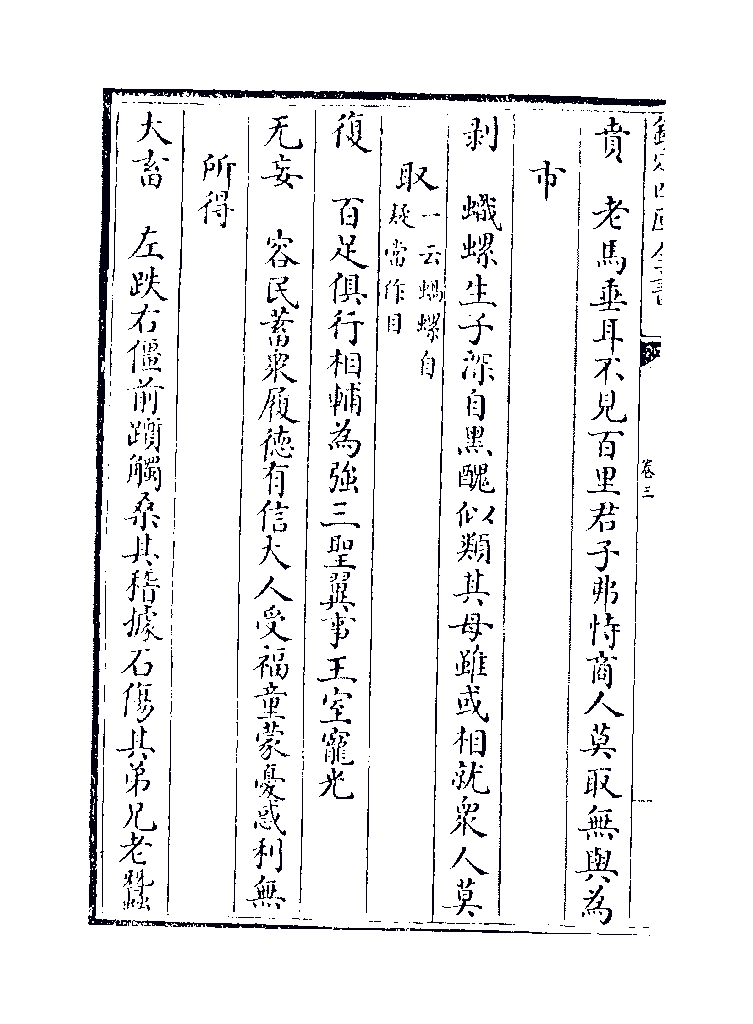 欽定四庫全書
卷三
賁　老馬垂耳不見百里君子弗恃商人莫取無與為
市
剥　蟙螺生子深自黑醜似類其母雖或相就衆人莫
取一云蝸螺自
疑當作目
復　百足俱行相輔為強三聖翼事王室寵光
无妄　容民蓄衆履徳有信大人受福童蒙憂惑利無
所得
大畜　左跌右僵前躓觸桑其㮷據石傷其弟兄老蠶